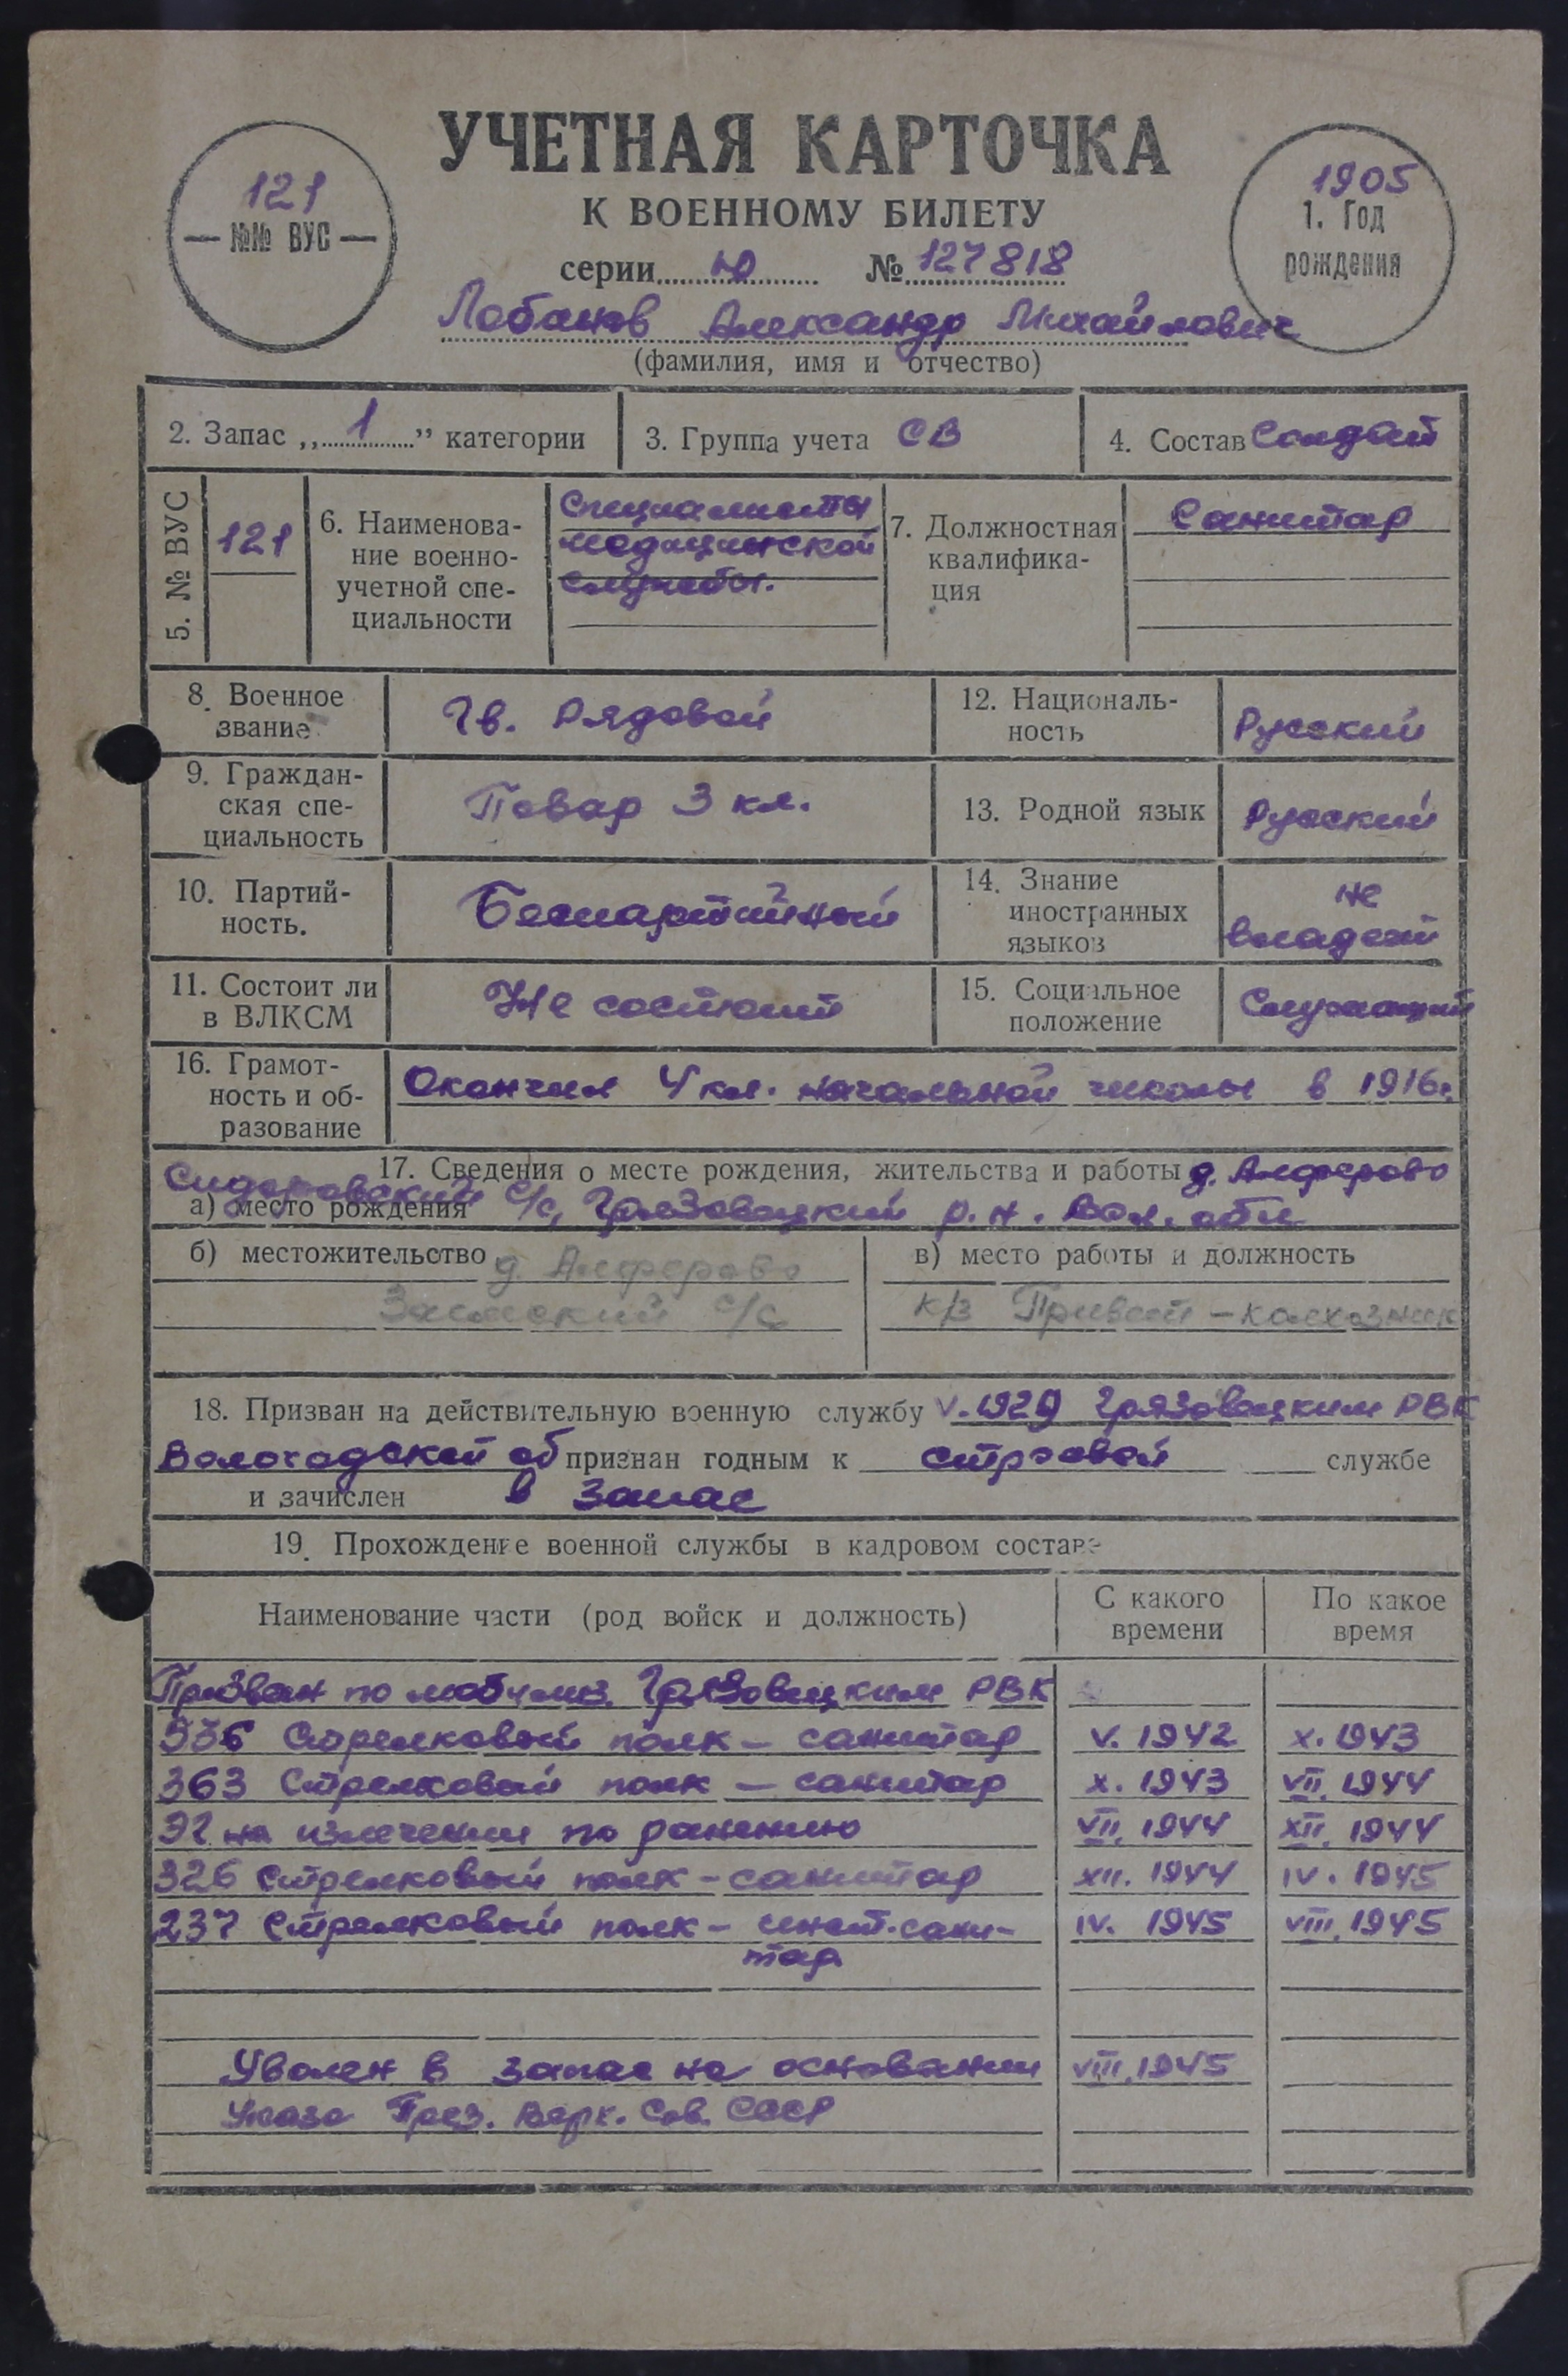 УЧЕТНАЯ КАРТОЧКА
К ВОЕННОМУ БИЛЕТУ
121
— №№ ВУС —
1905
1. Год
рождения
серии Ю № 127818
Лобанов Александр Михайлович
(фамилия, имя и отчество)
2. Запас „1” категории
3. Группа учета СВ
4. Состав Солдат
5. № ВУС
121
6. Наименова-
ние военно-
учетной спе-
циальности
Специалисты
медицинской
службы.
7. Должностная
квалифика-
ция
Санитар
8. Военное
звание
Гв. Рядовой
12. Националь-
ность
Русский
9. Граждан-
ская спе-
циальность
Повар 3 кл.
13. Родной язык
Русский
10. Партий-
ность.
Беспартийный
14. Знание
иностранных
языков
не
владеет
11. Состоит ли
в ВЛКСМ
Не состоит
15. Социальное
положение
Служащий
16. Грамот-
ность и об-
разование
Окончил 4 кл. начальной школы в 1916г.
17. Сведения о месте рождения, жительства и работы д. Алферово
а) место рождения Сидоровский с/с, Грязовецкий р.н. Вол. обл
б) местожительство д. Алферово
с/с
в) место работы и должность
к/з Привет – колхозник
18. Призван на действительную военную службу V. 1929 Грязовецким РВК
Вологодской об признан годным к строевой службе
и зачислен в запас
19. Прохождение военной службы в кадровом составе
Наименование части (род войск и должность)
С какого
времени
По какое
время
Призван по мобилиз. Грязовецким РВК
536 Стрелковый полк – санитар V. 1942 X. 1943
363 Стрелковый полк – санитар X. 1943 VII. 1944
на излечении по ранению VII. 1944 XII. 1944
326 Стрелковый полк – санитар XII. 1944 IV. 1945
237 Стрелковый полк – сани- IV. 1945 VIII. 1945
тар
Уволен в запас на основании VIII. 1945
Указа През. Верх. Сов. СССР